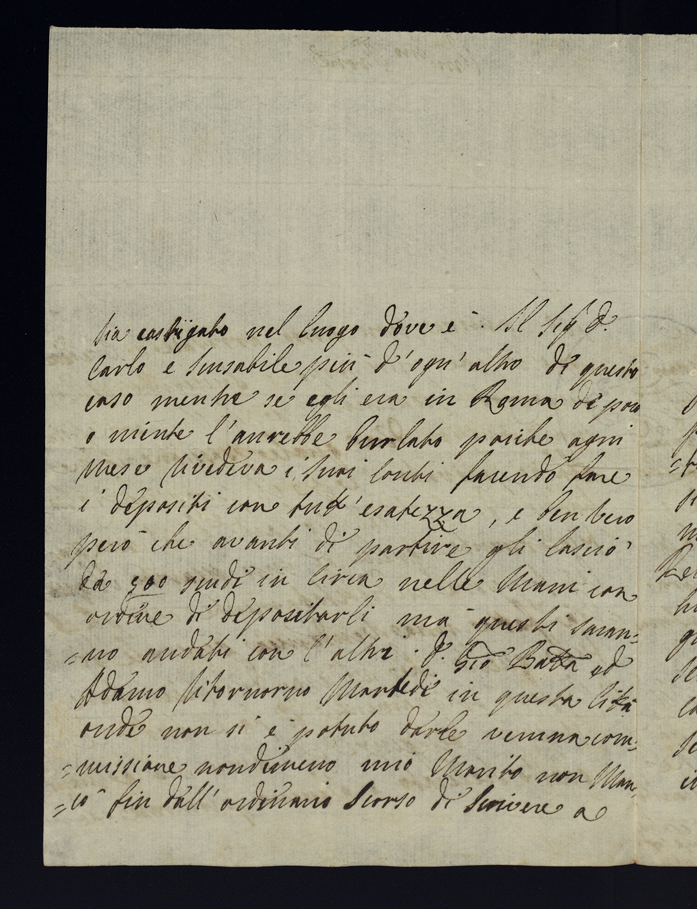 sia castigato nel luogo dove è. Il Sigr D.
Carlo e Scusabile più d'ogn'altro di questo
caso mentre se egli era in Roma di poco
o niente l'aurebbe burlato poiche ogni
mese rivedeva i suoi conti facendo fare
i depositi con tutt'esatezza, e ben vero
però che avanti di partire gli lasciò
da 500 scudi in circa nelle Mani con
ordine di depositarli ma questi saran=
=no andati con l'altri. D. Gio Batta ed
Adamo ritornorno Martedi in questa Città
onde non si è potuto darle veruna com=
=missione nondimeno mio Marito non Man=
=cò fin dall'ordinario Scorso di Scrivere a